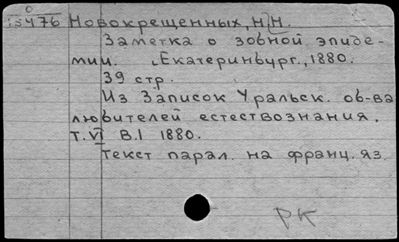 0
is476 Новокрещенных, Н.Н.
Заметка о зобной эпиде-
мии. Екатеринбург., 1880.
39 стр.
Из Записок Уральск. об-ва
любителей естествознания.
т. VI В.1 1880.
Текст парал. на франц. яз.
РК